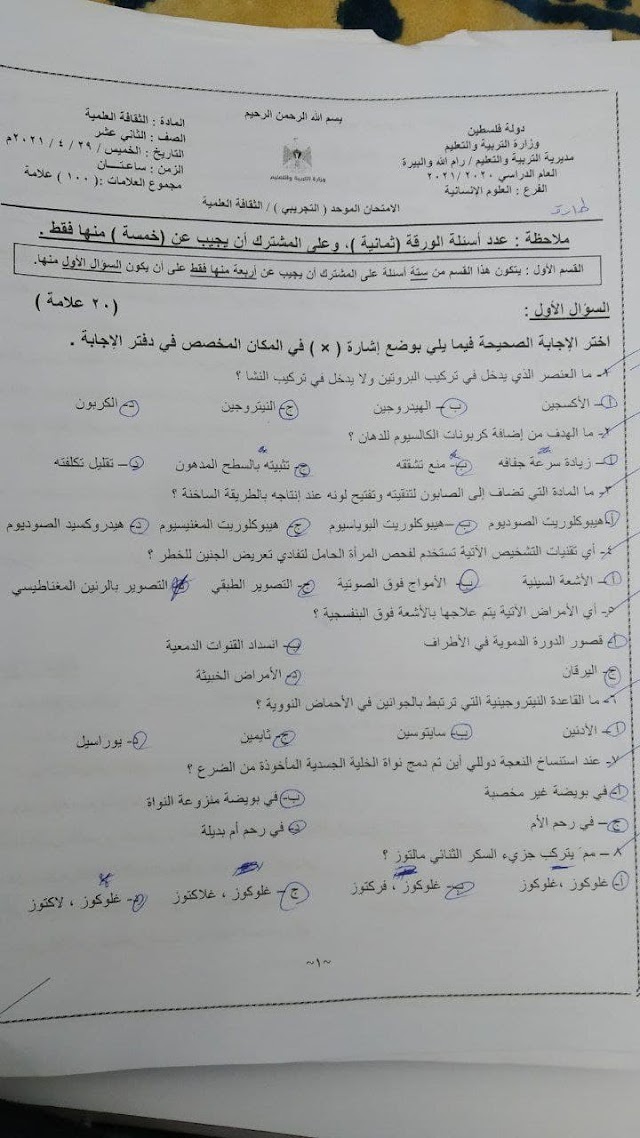 بسم الله الرحمن الرحيم
دولة فلسطين
وزارة التربية والتعليم
مديرية التربية والتعليم / رام الله والبيرة
العام الدراسي ٢٠٢٠ /٢٠٢١
الفرع : العلوم الإنسانية
وزارة التربية والتعليم
المادة : الثقافة العلمية
الصف : الثاني عشر
التاريخ : الخميس / ٢٩ / ٤ / ٢٠٢١م
الزمن : ساعتـــان
مجموع العلامات :( ١٠٠ ) علامة
الامتحان الموحد ( التجريبي ) / الثقافة العلمية
ملاحظة : عدد أسئلة الورقة (ثمانية )، وعلى المشترك أن يجيب عن (خمسة ) منها فقط .
القسم الأول : يتكون هذا القسم من ستة أسئلة على المشترك أن يجيب عن أربعة منها فقط على أن يكون السؤال الأول منها.
السؤال الأول : (٢٠ علامة )
اختر الإجابة الصحيحة فيما يلي بوضع إشارة ( × ) في المكان المخصص في دفتر الإجابة .
١- ما العنصر الذي يدخل في تركيب البروتين ولا يدخل في تركيب النشا ؟
أ- الأكسجين ب- الهيدروجين ج- النيتروجين د- الكربون
٢- ما الهدف من إضافة كربونات الكالسيوم للدهان ؟
أ- زيادة سرعة جفافه ب- منع تشققه ج- تثبيته بالسطح المدهون د- تقليل تكلفته
٣- ما المادة التي تضاف إلى الصابون لتنقيته وتفتيح لونه عند إنتاجه بالطريقة الساخنة ؟
أ- هيبوكلوريت الصوديوم ب- هيبوكلوريت البوياسيوم ج- هيبوكلوريت المغنيسيوم د- هيدروكسيد الصوديوم
٤- أي تقنيات التشخيص الآتية تستخدم لفحص المرأة الحامل لتفادي تعريض الجنين للخطر ؟
أ- الأشعة السينية ب- الأمواج فوق الصوتية ج- التصوير الطبقي د- التصوير بالرنين المغناطيسي
٥- أي الأمراض الآتية يتم علاجها بالأشعة فوق البنفسجية ؟
أ- قصور الدورة الدموية في الأطراف ب- انسداد القنوات الدمعية
ج- اليرقان د- الأمراض الخبيثة
٦- ما القاعدة النيتروجينية التي ترتبط بالجوانين في الأحماض النووية ؟
أ- الأدنين ب- سايتوسين ج- ثايمين د- يوراسيل
٧- عند استنساخ النعجة دوللي أين تم دمج نواة الخلية الجسدية المأخوذة من الضرع ؟
أ- في بويضة غير مخصبة ب- في بويضة منزوعة النواة
ج- في رحم الأم د- في رحم أم بديلة
٨- مم يتركب جزيء السكر الثنائي مالتوز ؟
أ- غلوكوز ،غلوكوز ب- غلوكوز ، فركتوز ج- غلوكوز ، غلاكتوز د- غلوكوز ، لاكتوز
~١~